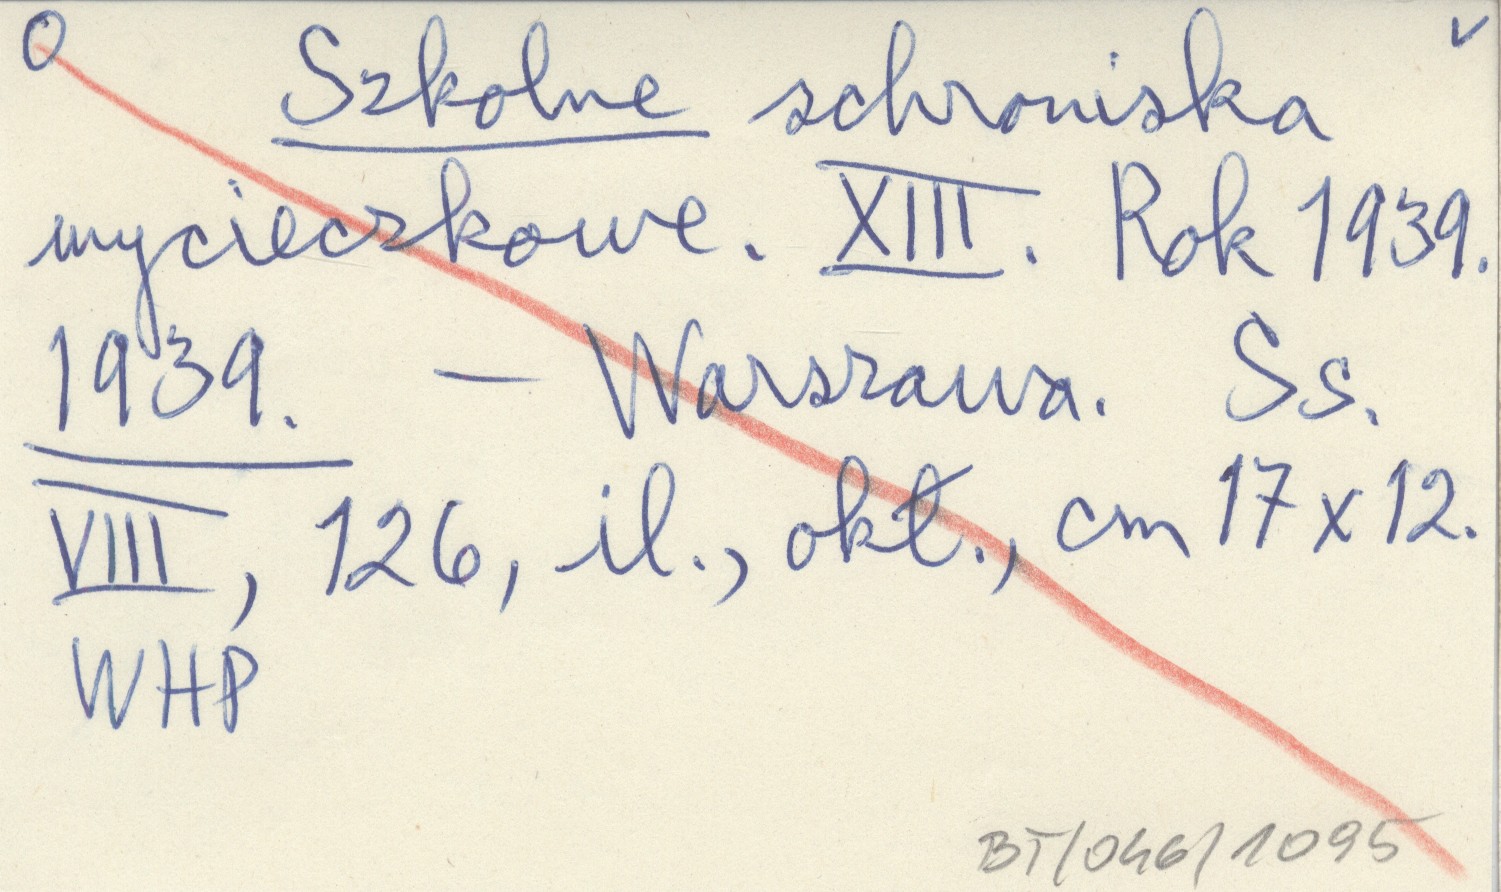 O Szkolne schroniska v
wycieczkowe. XIII. Rok 1939.
1939. — Warszawa. Ss.
VIII, 126, il., okł., cm 17 x 12.
WHP
BT/046/1095